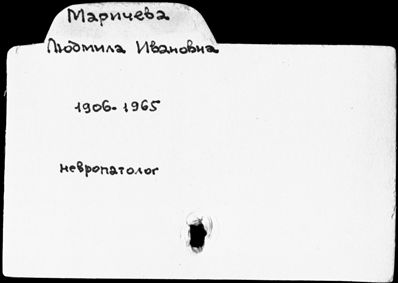 Маричева
Людмила Ивановна
1906-1965
невропатолог